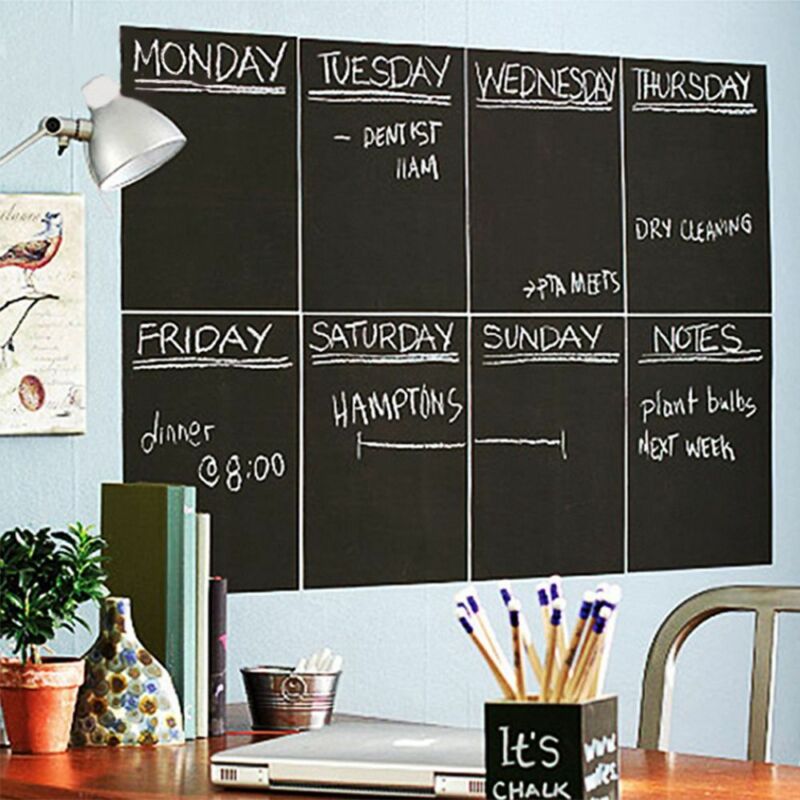 MONDAY
TUESDAY
- DENTIST
11AM
WEDNESDAY
→PTA MEETS
THURSDAY
DRY CLEANING
FRIDAY
dinner
@8:00
SATURDAY
HAMPTONS
SUNDAY
NOTES
plant bulbs
NEXT WEEK
It's
CHALK
www.